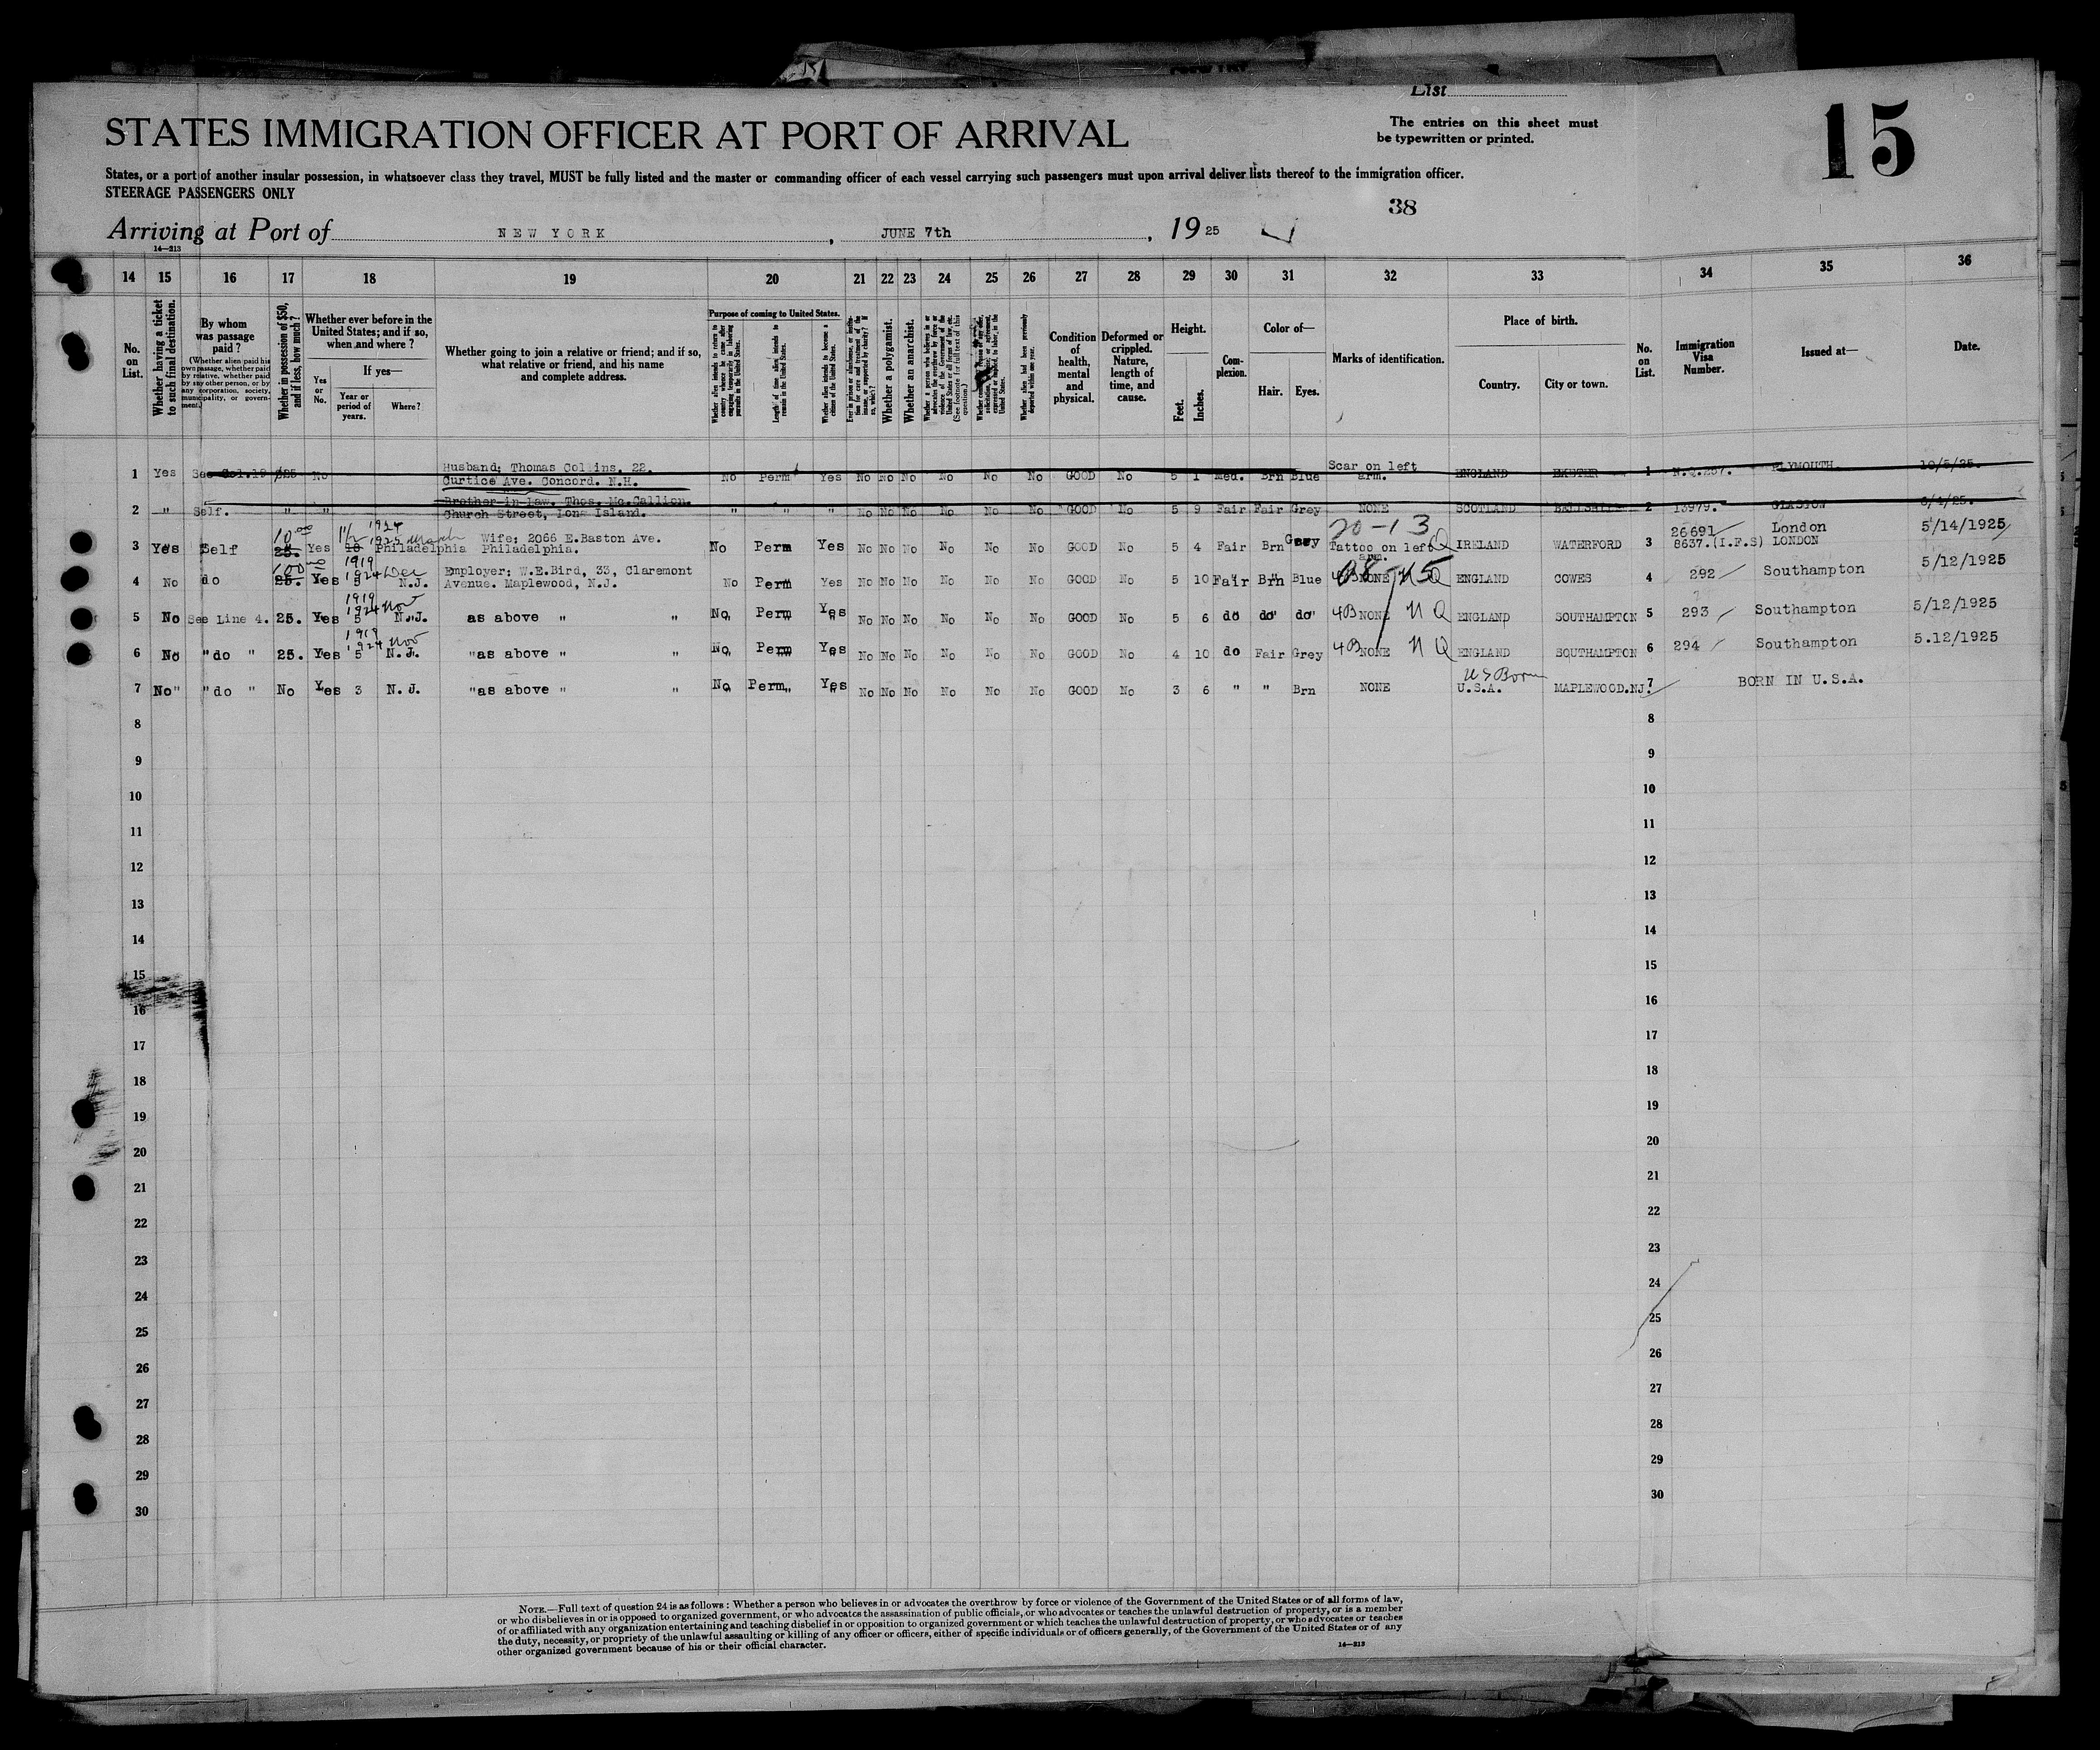 List
STATES IMMIGRATION OFFICER AT PORT OF ARRIVAL
The entries on this sheet must
be typewritten or printed.
15
States, or a port of another insular possession, in whatsoever class they travel, MUST be fully listed and the master or commanding officer of each vessel carrying such passengers must upon arrival deliver lists thereof to the immigration officer.
STEERAGE PASSENGERS ONLY
38
Arriving at Port of NEW YORK, JUNE 7th, 1925
14—213
14 15 16 17 18 19 20 21 22 23 24 25 26 27 28 29 30 31 32 33 34 35 36
No. on List.
Whether having a ticket to such final destination.
By whom was passage paid?
(Whether alien paid his own passage, whether paid by relative, whether paid by any other person, or by any corporation, society, municipality, or government.)
Whether in possession of $50, and if less, how much?
Whether ever before in the United States; and if so, when and where?
Yes or No.
If yes—
Year or period of years.
Where?
Whether going to join a relative or friend; and if so, what relative or friend, and his name and complete address.
Purpose of coming to United States.
Whether alien intends to return to country whence he came after engaging temporarily in laboring pursuits in the United States.
Length of time alien intends to remain in the United States.
Whether alien intends to become a citizen of the United States.
Whether a polygamist.
Whether an anarchist.
Condition of health, mental and physical.
Deformed or crippled. Nature, length of time, and cause.
Height.
Feet.
Inches.
Complexion.
Color of—
Hair.
Eyes.
Marks of identification.
Place of birth.
Country.
City or town.
No. on List.
Immigration Visa Number.
Issued at—
Date.
1 Yes See Col.19 $25 No Husband; Thomas Collins. 22. Curtice Ave. Concord. N.H. No Perm Yes No No No No No No GOOD No 5 1 Med. Brn Blue Scar on left arm. ENGLAND EXETER 1 PLYMOUTH
2 " Self. " " Brother-in-law. Thos. Mc.Callion. Church Street, Long Island. " " " No No No No No No GOOD No 5 9 Fair Fair Grey NONE SCOTLAND 2 13979. GLASGOW
3 Yes Self 10.00 25. Yes 1924 1925 March Philadelphia Wife; 2066 E.Baston Ave. Philadelphia. No Perm Yes No No No No No No GOOD No 5 4 Fair Brn Grey 20-13 Tattoo on left arm. Q IRELAND WATERFORD 3 26691 8637.(I.F.S) London LONDON 5/14/1925
4 No do 100 25. Yes 1919 1924 Dec 5 N.J. Employer; W.E.Bird, 33, Claremont Avenue. Maplewood, N.J. No Perm Yes No No No No No No GOOD No 5 10 Fair Brn Blue NONE ENGLAND COWES 4 292 Southampton 5/12/1925
5 No See Line 4. 25. Yes 1919 1924 Nov 5 N.J. as above " " No Perm Yes No No No No No No GOOD No 5 6 do do do 4B NONE NQ ENGLAND SOUTHAMPTON 5 293 Southampton 5/12/1925
6 No "do " 25. Yes 1919 1924 Nov 5 N.J. "as above " " No Perm Yes No No No No No No GOOD No 4 10 do Fair Grey 4B NONE NQ ENGLAND SOUTHAMPTON 6 294 Southampton 5.12/1925
7 No" "do " No Yes 3 N.J. "as above " " No Perm Yes No No No No No No GOOD No 3 6 " " Brn NONE US Born U.S.A. MAPLEWOOD.NJ. 7 BORN IN U.S.A.
8 8
9 9
10 10
11 11
12 12
13 13
14 14
15 15
16 16
17 17
18 18
19 19
20 20
21 21
22 22
23 23
24 24
25 25
26 26
27 27
28 28
29 29
30 30
NOTE.—Full text of question 24 is as follows: Whether a person who believes in or advocates the overthrow by force or violence of the Government of the United States or of all forms of law,
or who disbelieves in or is opposed to organized government, or who advocates the assassination of public officials, or who advocates or teaches the unlawful destruction of property, or is a member
of or affiliated with any organization entertaining and teaching disbelief in or opposition to organized government or which teaches the unlawful destruction of property, or who advocates or teaches
the duty, necessity, or propriety of the unlawful assaulting or killing of any officer or officers, either of specific individuals or of officers generally, of the Government of the United States or of any
other organized government because of his or their official character.
14—213